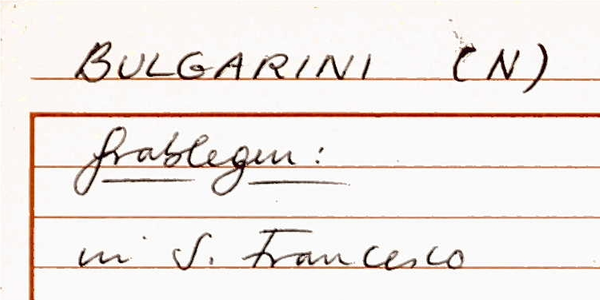 BULGARINI (N)
Grablegen:
in S. Francesco